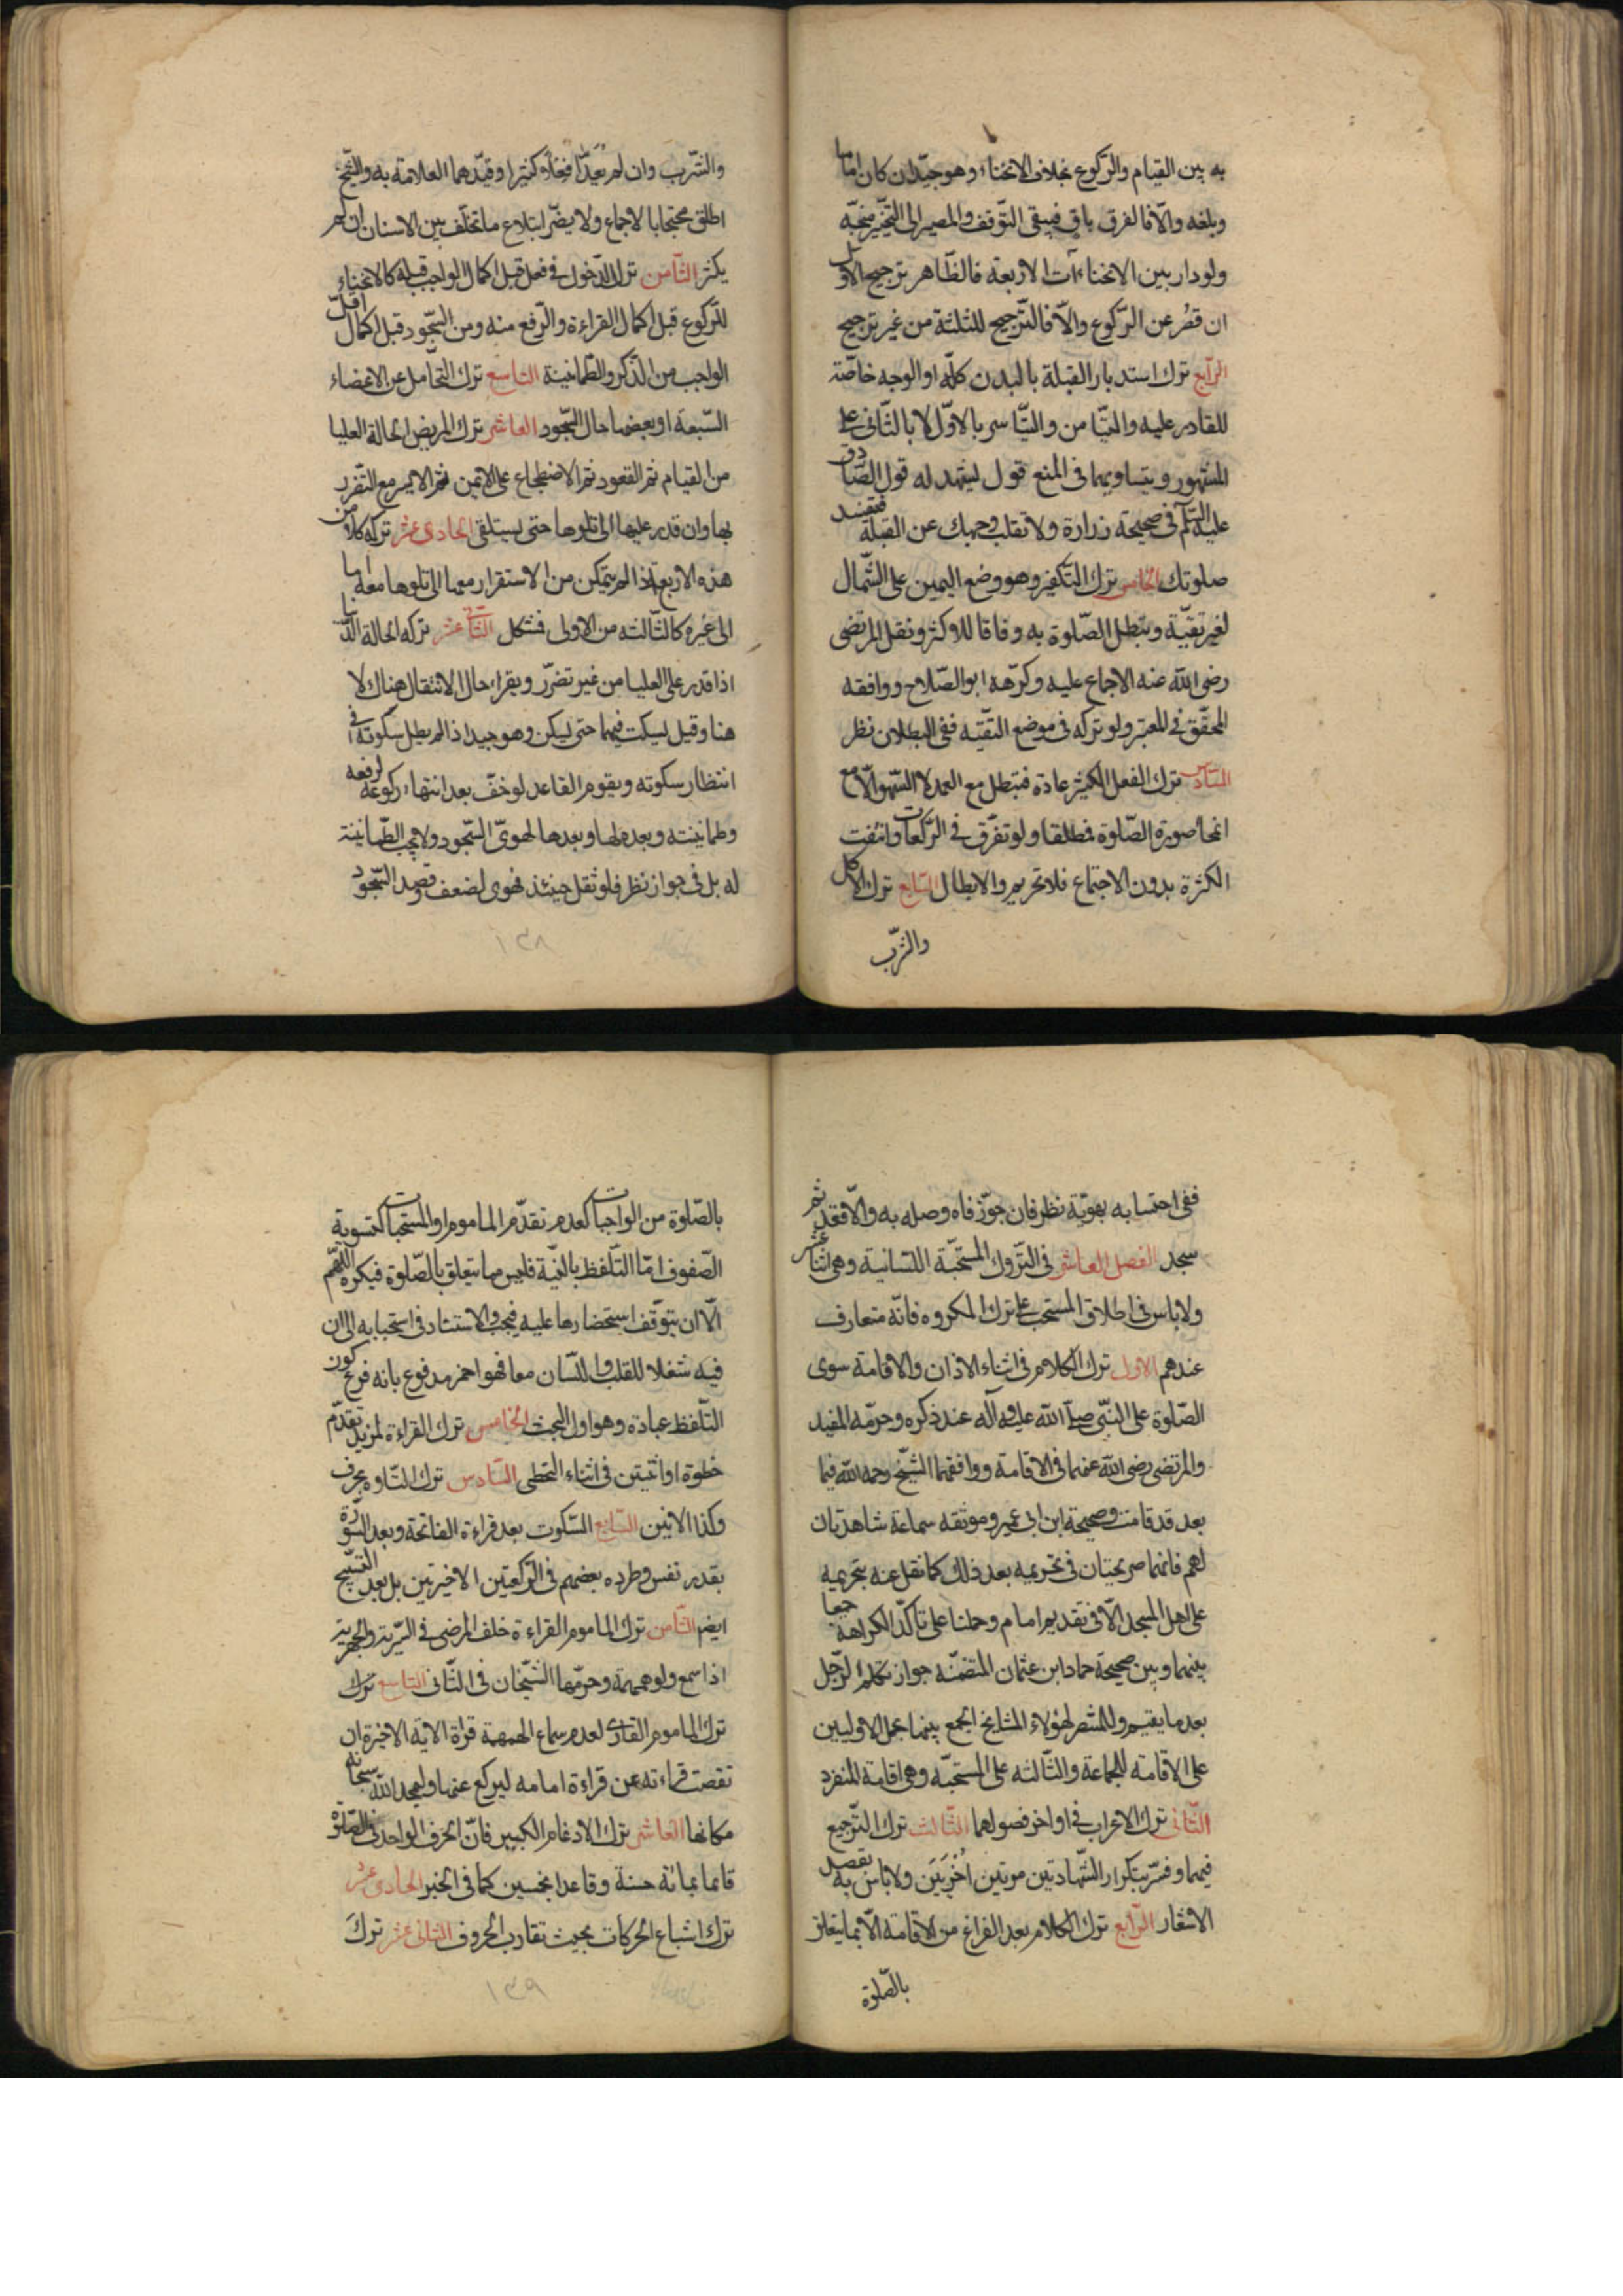 به بين القيام والركوع بخلاف الانحناء وهو جيد ان كان اماما
وبلغه والّا فالفرق باق فيبقى التوقف والمصير الى التخيير متجه
ولو دار بين الانحناءآت الاربعة فالظاهر ترجيح الاول
ان قصر عن الركوع والّا فالترجيح للثلثة من غير ترجيح
الرابع ترك استدبار القبلة بالبدن كله او الوجه خاصة
للقادر عليه والتيامن والتياسر بالاول لا بالثانى على
المشهور وبتساويهما فى المنع قول يشهد له قول الصادق
عليه السلم فى صحيحة زرارة ولا تقلب وجهك عن القبلة فتفسد
صلوتك الخامس ترك التكفير وهو وضع اليمين على الشمال
لغير تقيّة وتبطل الصّلوة به وفاقا للاكثر ونقل المرتضى
رضى الله عنه الاجماع عليه وكرّهه ابو الصّلاح ووافقه
المحقّق فى المعتبر ولو تركه فى موضع التقيّه ففى البطلان نظر
السادس ترك الفعل الكثير عادة فتبطل مع العمد لا السّهو الّا مع
انمحاء صورة الصّلوة فمطلقا ولو تفرّق فى الركعات وانتفت
الكثرة بدون الاجتماع فلا تحريم ولا ابطال السابع ترك الاكل
والشرب
والشّرب وان لم يعدّا فعلاً كثيرا وقيّدهما العلامة به والشيخ
اطلق محتجا بالاجماع ولا يضرّ ابتلاع ما تخلّف بين الاسنان ان لم
يكثر الثامن ترك الدخول فى فعل قبل اكمال الواجب قبله كالانحناء
للركوع قبل اكمال القراءة والرفع منه ومن السجود قبل اكمال اقلّ
الواجب من الذكر والطمانينة التاسع ترك التحامل عن الاعضاء
السّبعة او بعضها حال السّجود العاشر ترك المريض الحالة العليا
من القيام ثم القعود ثم الاضطجاع على الايمن ثم الايسر مع التضرر
بها وان قدر عليها الى تلوها حتى يستلقى الحادى عشر تركه كلا من
هذه الاربع اذا لم يتمكن من الاستقرار معها الى تلوها معه اما
الى غيره كالثالثه من الاولى فمشكل الثانى عشر تركه الحالة الدنيا
اذا قدر على العليا من غير تضرّر ويقراء حال الانتقال هناك لا
هنا وقيل يسكت فيهما حتى يسكن وهو جيد اذا لم يطل سكوته فى
انتظار سكونه ويقوم القاعد لو خفّ بعد انتهاء ركوعه لرفعه
وطمانينته وبعده لها وبعدها لهوىّ السّجود ولا يجب الطّمانينة
له بل فى جواز نظر فلو ثقل حينئذ فهوى لضعف وقصد السّجود
١٣٨
ففى احتسابه بهويّه نظر فان جوّزناه وصله به والّا فقعد ثم
سجد الفصل العاشر فى التّروك المستحبّة اللسانية وهى اثنا عشر
ولا باس فى اطلاق المستحب على ترك المكروه فانّه متعارف
عندهم الاول ترك الكلام فى اثناء الاذان والاقامة سوى
الصّلوة على النبّى صلى الله عليه وآله عند ذكره وحرّمه المفيد
والمرتضى رضى الله عنهما فى الاقامة ووافقهما الشيخ رحمه الله فيما
بعد قد قامت وصحيحة ابن ابى عمير وموثقه سماعة شاهدتان
لهم فانهما صريحتان فى تحريمه بعد ذلك كما نقل عنه بتحريمه
على اهل المسجد الّا فى تقديم امام وحملنا على تاكّد الكراهة جمعا
بينهما وبين صحيحة حماد ابن عثمان المتضمّنه جواز تكلم الرّجل
بعد ما يقيم وللمنتصر لهؤلاء المشايخ الجمع بينهما بحمل الاوليين
على الاقامة للجماعة والثّالثه على المستحبّه وهى اقامة المنفرد
الثّانى ترك الاعراب فى اواخر فصولهما الثّالث ترك الترجيع
فيهما وفسّر بتكرار الشّهادتين مرتين اُخْرَيَيَن ولا باس به بقصد
الاشعار الرابع ترك الكلام بعد الفراغ من الاقامة الّا بما يتعلق
بالصّلوة
بالصّلوة من الواجبات كعدم تقدّم الماموم او المستحبات كتسوية
الصّفوف امّا التّلفظ بالنيّة فليس مما يتعلق بالصّلوة فيكره اللهم
الّا ان يتوقف استحضارها عليه فيجب والاستناد فى استحبابه الى ان
فيه شغلا للقلب واللّسان معا فهو احمز مدفوع بانه فرع كون
التّلفظ عبادة وهو اول البحث الخامس ترك القراءة لمزيد تقدّم
خطوة او اثنتين فى اثناء التخطى السّادس ترك التّاوه بحرف
وكذا الانين السّابع السّكوت بعد قراءة الفاتحة وبعد السّورة
بقدر نفس وطرده بعضهم فى الركعتين الاخيرتين بل بعد التسبيح
ايضا الثّامن ترك الماموم القراءة خلف المرضى فى السّريّة والجهرية
اذا سمع ولو همهمة وحرّمها الشّيخان فى الثّانى التاسع ترك
ترك الماموم القارى لعدم سماع الهمهمة قراة الاية الاخيرة ان
نقصت قراءته عن قراءة امامه ليركع عنها وليمجد الله سبحانه
مكانها العاشر ترك الادغام الكبير فانّ الحرف الواحد فى الصّلوة
قائما بمائة حسنة وقاعدا بخمسين كما فى الخبر الحادى عشر
ترك اشباع الحركات بحيث تقارب الحروف الثانى عشر تركَ
١٣٩